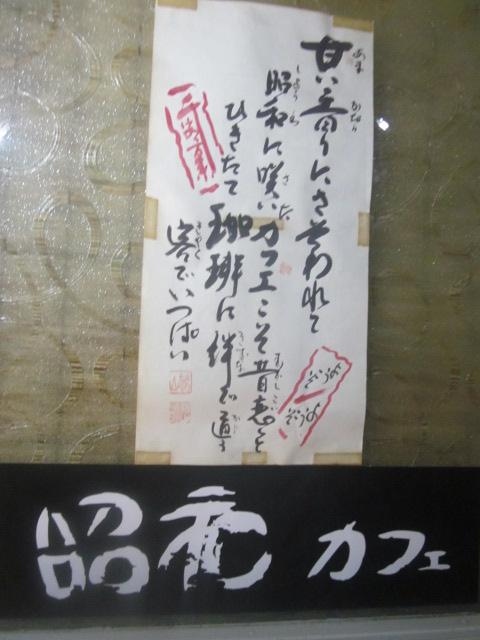 甘い香りにさそわれて
昭和に咲いたカフェこそ昔恋しと
ひきたて珈琲に絆で道づ
客でいっぱい
どうぞ
どうぞ
昭和 カフェ